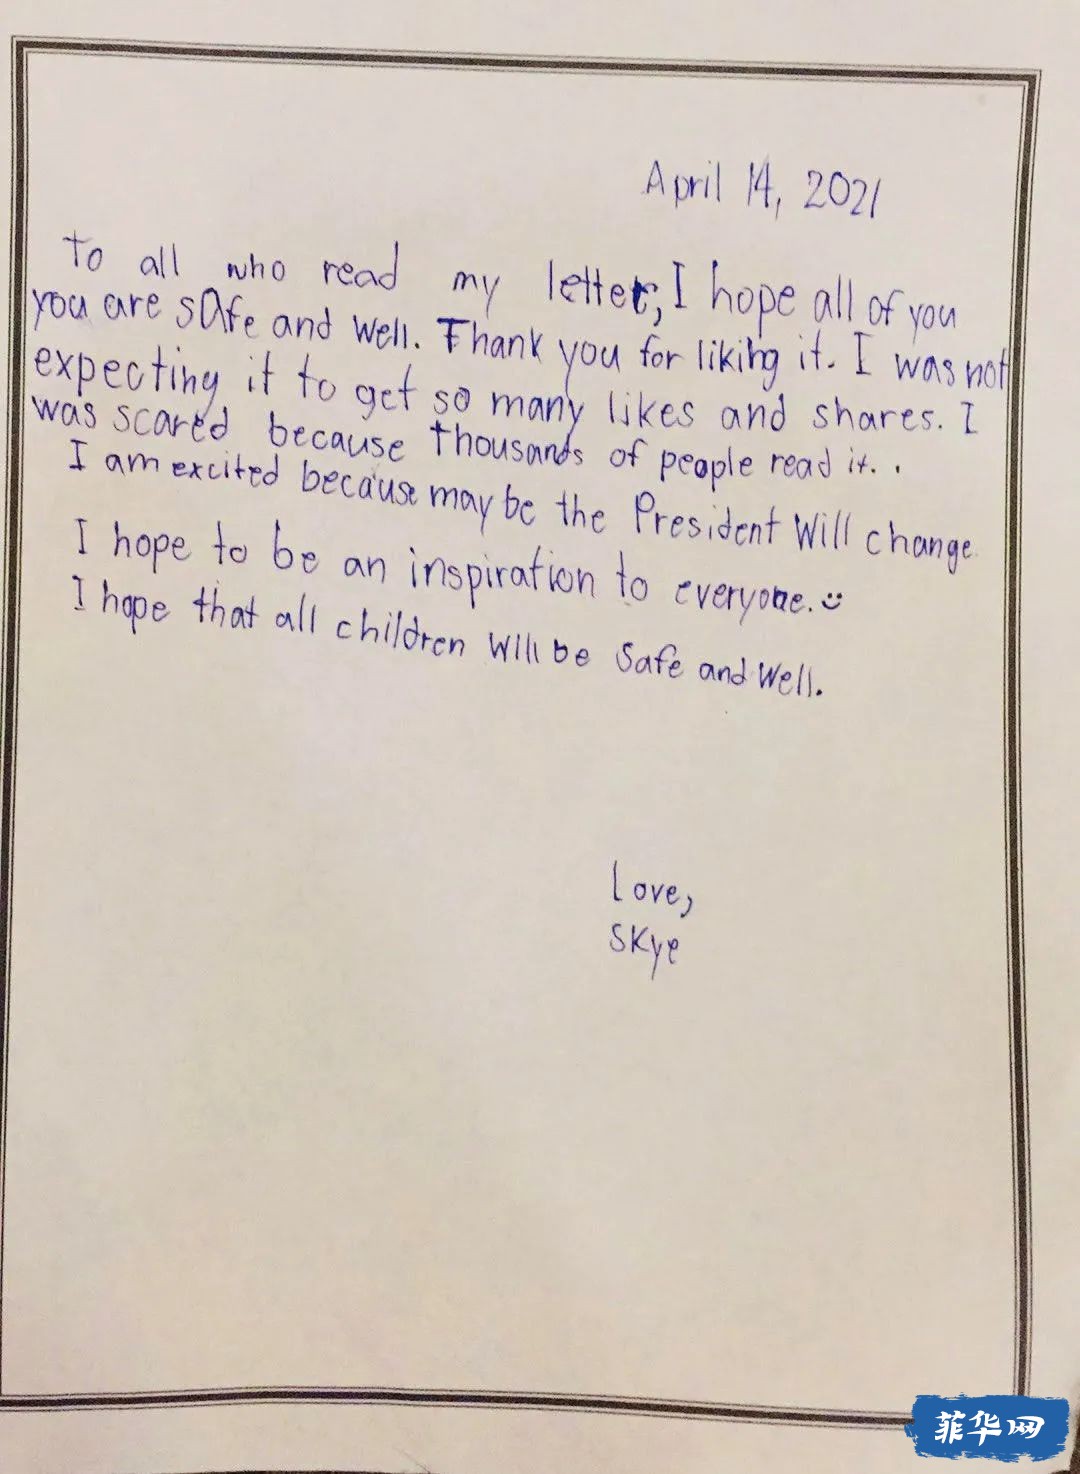 April 14, 2021
To all who read my letter, I hope all of you
you are safe and well. Thank you for liking it. I was not
expecting it to get so many likes and shares. I
was scared because thousands of people read it. .
I am excited because may be the President will change.
I hope to be an inspiration to everyone. :)
I hope that all children will be safe and well.
Love,
Skye
菲华网